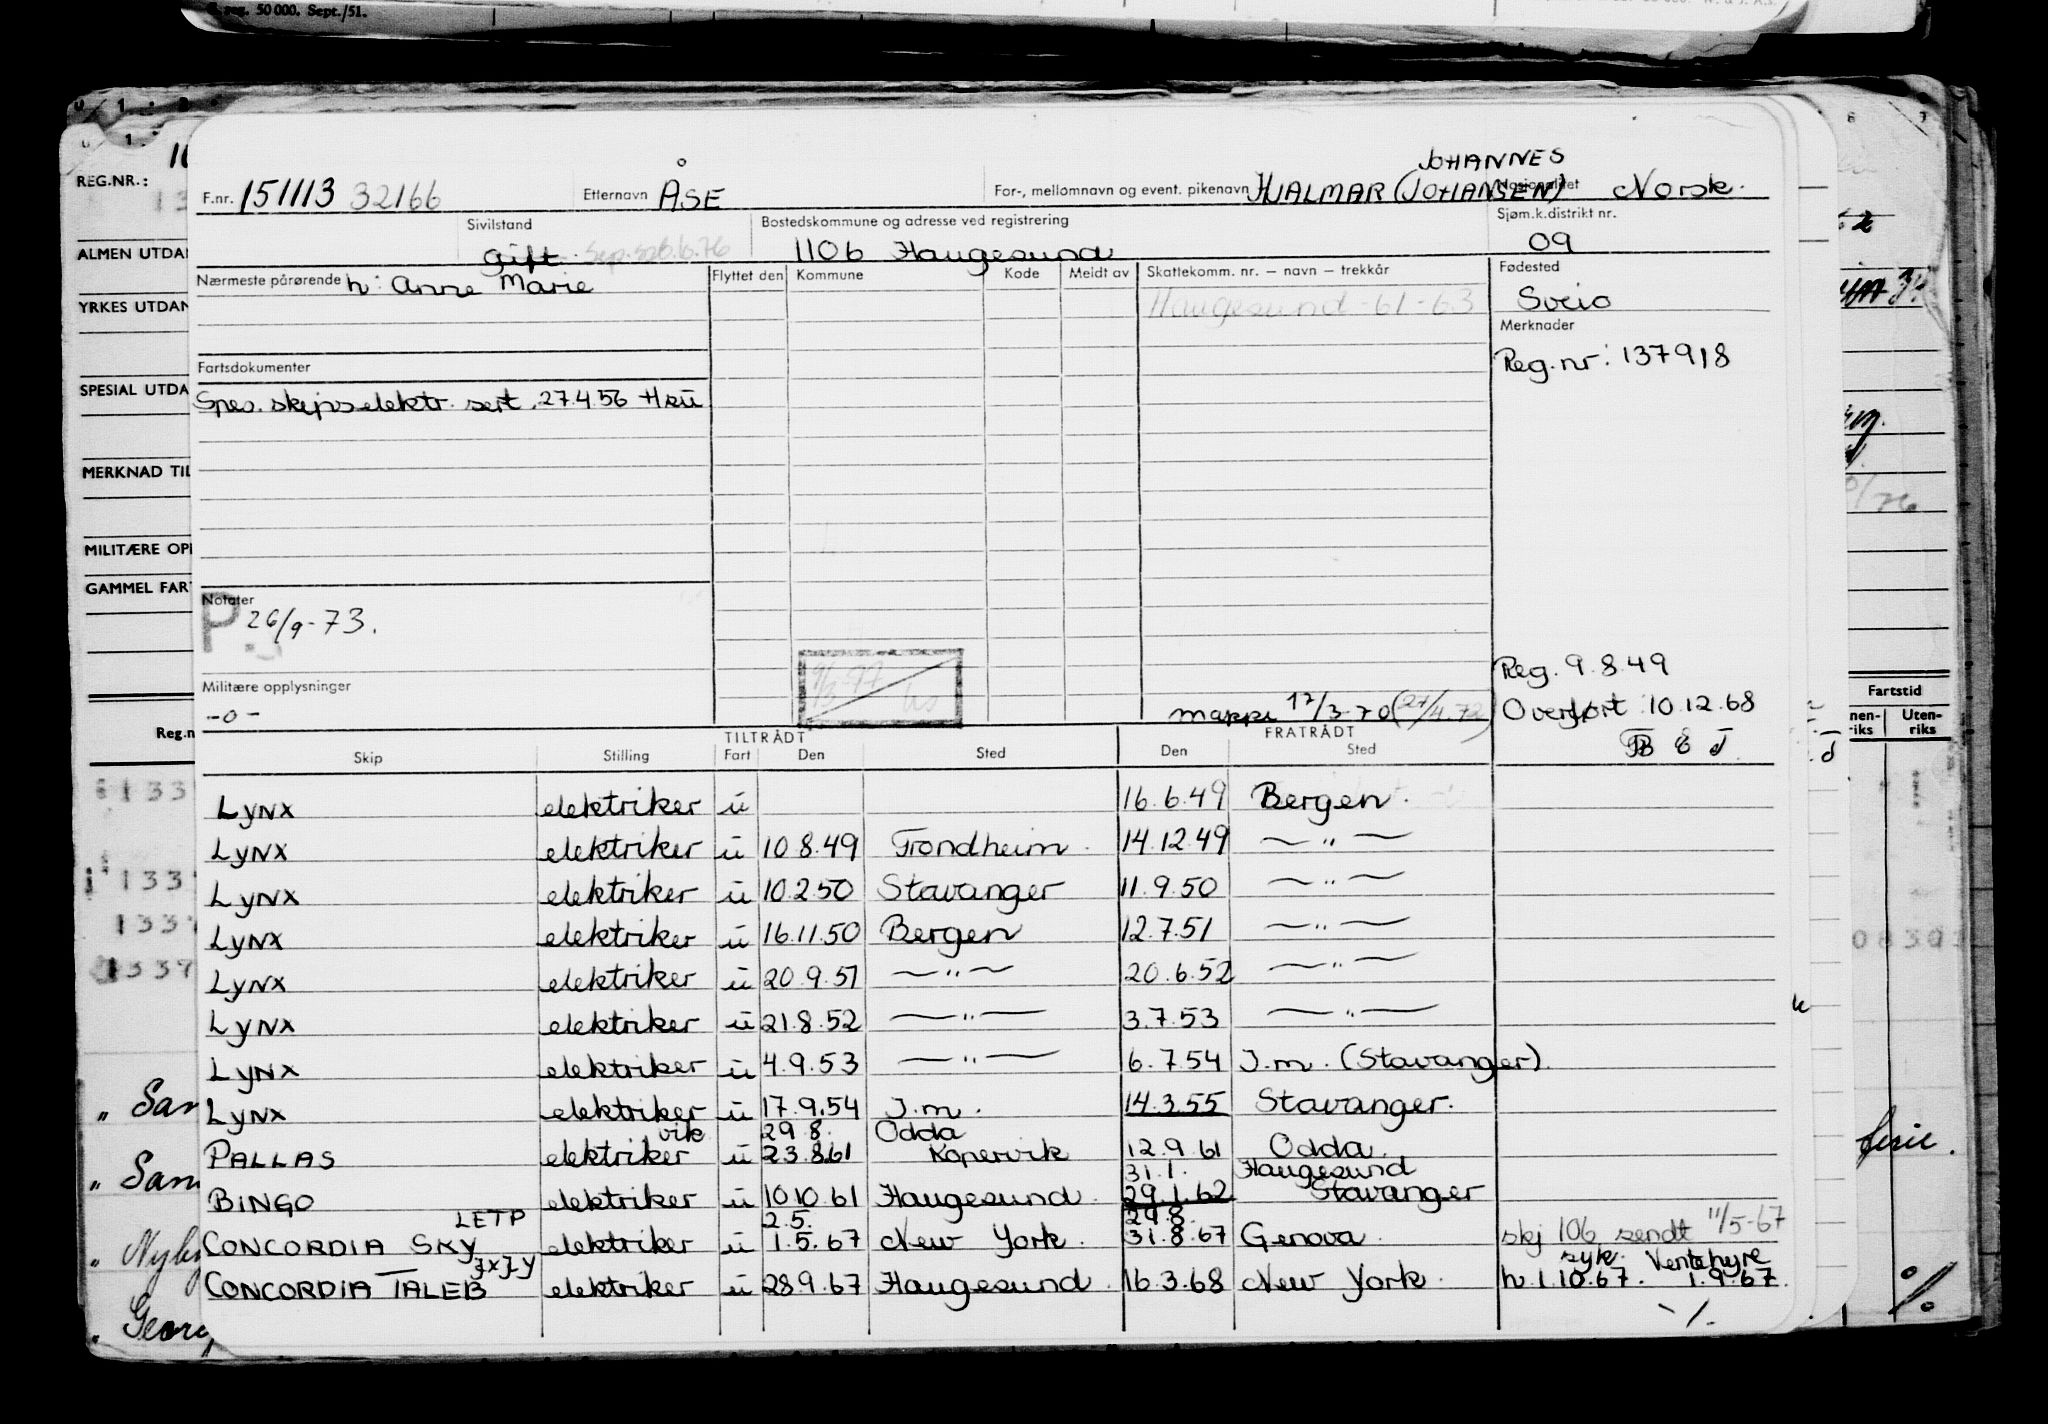 reg. 50 000. Sept./51.
REG.NR.:
ALMEN UTDA
YRKES UTDAN
SPESIAL UTDA
MERKNAD TIL
MILITÆRE OP
GAMMEL FAR
Reg.n
JOHANNES
F.nr. 151113 32166 Etternavn ÅSE For-, mellomnavn og event. pikenavn HJALMAR (JOHANSEN) Nasjonalitet Norsk.
Sivilstand Bostedskommune og adresse ved registrering Sjøm.k.distrikt nr.
gift. Sep. 6.76 1106 Haugesund 09
Nærmeste pårørende h: Anne Marie Flyttet den Kommune Kode Meldt av Skattekomm. nr. – navn – trekkår Fødested
Haugesund - 61 - 63 Sveio
Merknader
Reg.nr: 137918
Fartsdokumenter
Spes. skipselektr. sert. 27.4.56 Hsu
Notater
P 26/9-73.
Militære opplysninger
-o-
Reg. 9.8.49
mappe 17/3-70 (27/4.72) Overført 10.12.68
B & J.
TILTRÅDT FRATRÅDT
Skip Stilling Fart Den Sted Den Sted
Fartstid
Uten-
riks
LYNX elektriker ū 16.6.49 Bergen.
LYNX elektriker ū 10.8.49 Trondheim. 14.12.49 — " —
LYNX elektriker ū 10.2.50 Stavanger 11.9.50 — " —
LYNX elektriker ū 16.11.50 Bergen 12.7.51 — " —
LYNX elektriker ū 20.9.51 — " — 20.6.52 — " —
LYNX elektriker ū 21.8.52 — " — 3.7.53 — " —
LYNX elektriker ū 4.9.53 — " — 6.7.54 J.m. (Stavanger).
LYNX elektriker ū 17.9.54 J.m. 14.3.55 Stavanger.
vik 29.8. Odda
PALLAS elektriker ū 23.8.61 Kopervik 12.9.61 Odda.
31.1. Haugesund
BINGO elektriker ū 10.10.61 Haugesund. 29.1.62 Stavanger
LETP 2.5. 29.8.
CONCORDIA SKY elektriker ū 1.5.67 New York. 31.8.67 Genova. skj 106 sendt 11/5-67
JXJY syk. Ventehyre
CONCORDIA TALEB elektriker ū 28.9.67 Haugesund. 16.3.68 New York. h. 1.10.67. 1.9.67.
ferie.